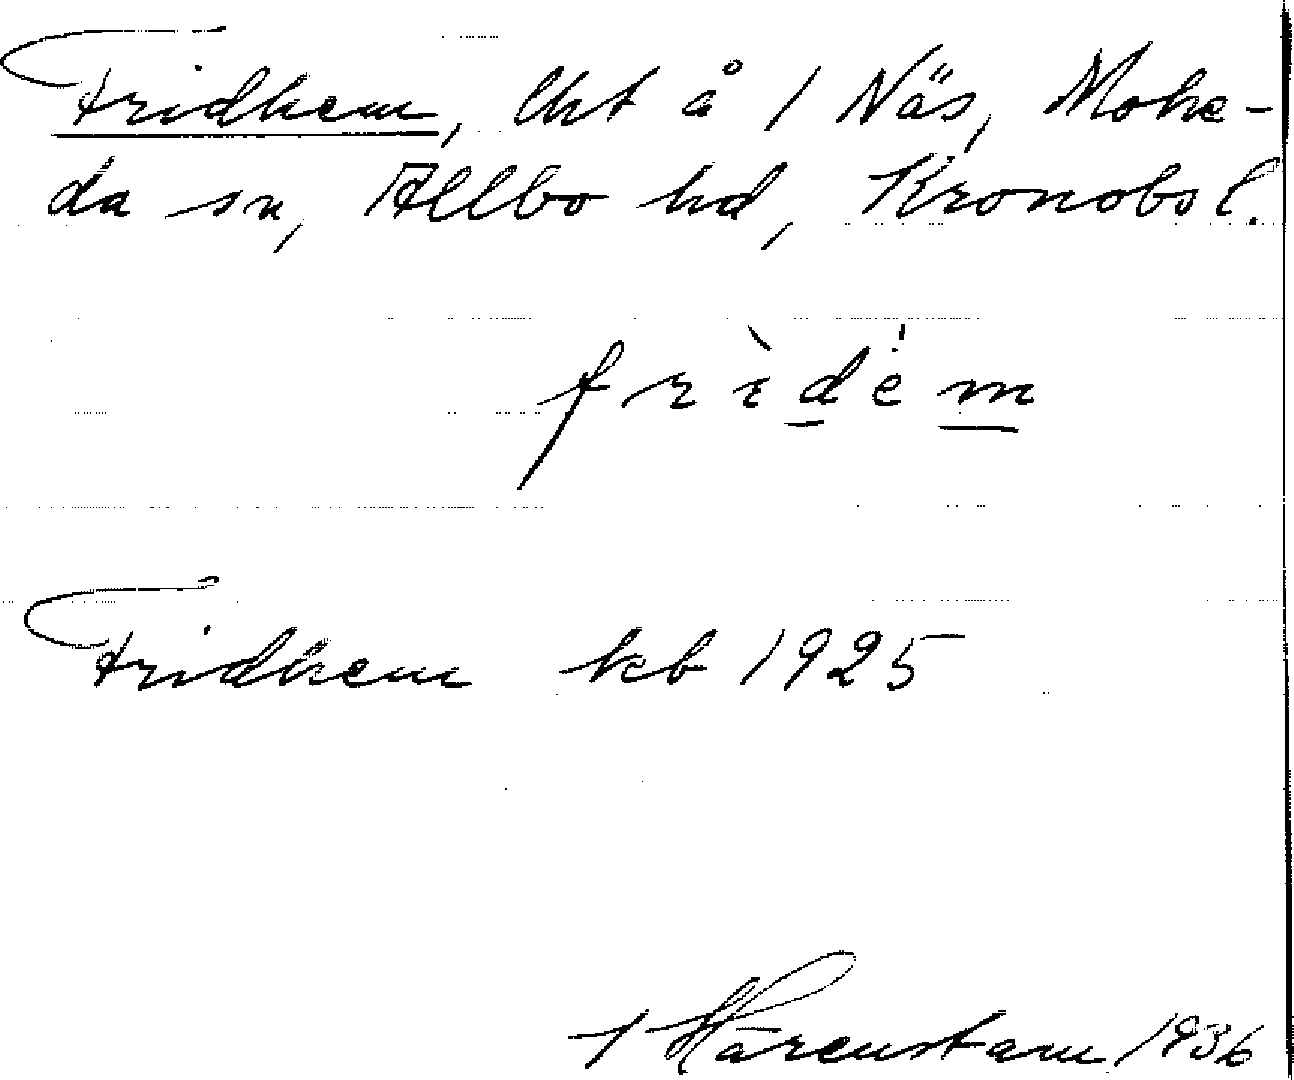 Fridhem, lht å 1 Näs, Mohe-
da sn, Allbo hd, Kronobs l.
frìdėm
Fridhem kb 1925
Härenstam 1936